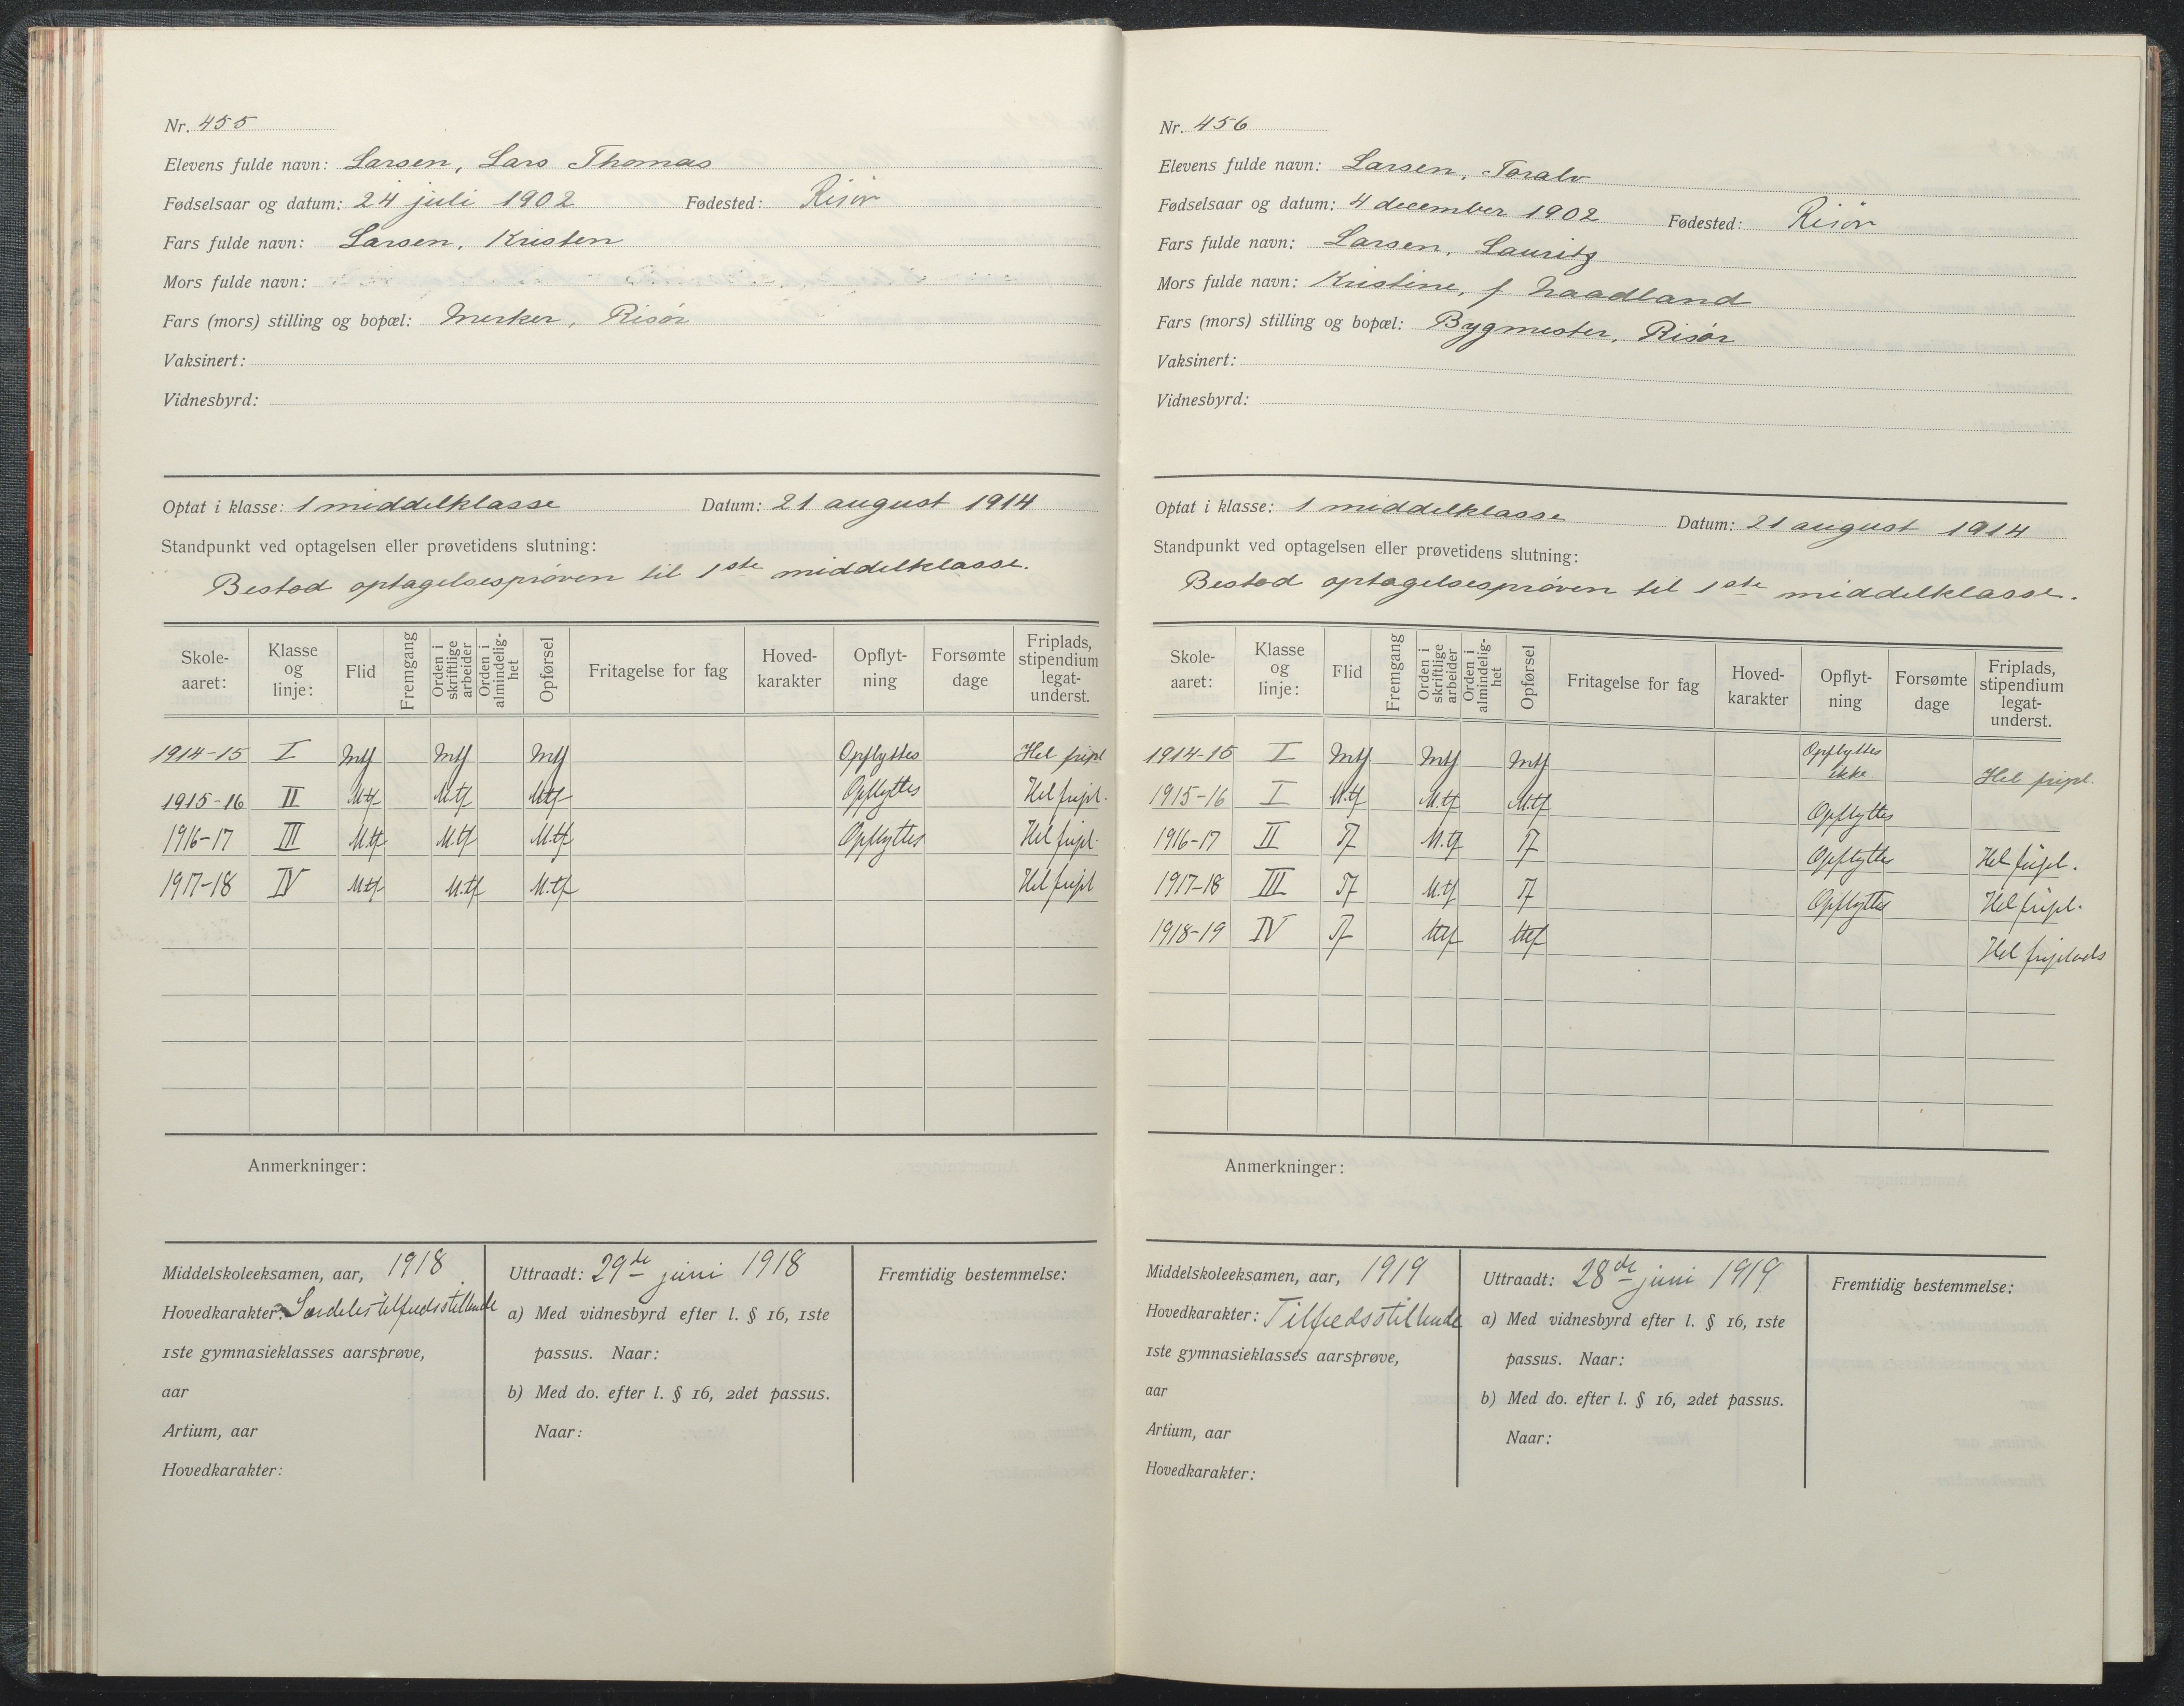 Nr. 455
Elevens fulde navn: Larsen, Lars Thomas
Fødselsaar og datum: 24 juli 1902 Fødested: Risør
Fars fulde navn: Larsen, Kristen
Mors fulde navn:
Fars (mors) stilling og bopæl: Merker, Risør
Vaksinert:
Vidnesbyrd:
Optat i klasse: 1 middelklasse Datum: 21 august 1914
Standpunkt ved optagelsen eller prøvetidens slutning:
Bestod optagelsesprøven til 1ste middelklasse.
Skole-aaret: Klasse og linje: Flid Fremgang Orden i skriftlige arbeider Orden i almindelig-het Opførsel Fritagelse for fag Hoved-karakter Opflyt-ning Forsømte dage Friplads, stipendium legat-underst.
1914-15 I Mtf Mtf Mtf Opflyttes Hel fripl
1915-16 II Mtf M.tf Mtf Opflyttes Hel fripl.
1916-17 III M.tf M.tf M.tf Opflyttes Hel fripl.
1917-18 IV Mtf M.tf M.tf Hel fripl
Anmerkninger:
Middelskoleeksamen, aar, 1918
Hovedkarakter: Særdeles tilfredsstillende
1ste gymnasieklasses aarsprøve,
aar
Artium, aar
Hovedkarakter:
Uttraadt: 29de juni 1918
a) Med vidnesbyrd efter l. § 16, 1ste
passus. Naar:
b) Med do. efter l. § 16, 2det passus.
Naar:
Fremtidig bestemmelse:
Nr. 456
Elevens fulde navn: Larsen, Toralv
Fødselsaar og datum: 4 december 1902 Fødested: Risør
Fars fulde navn: Larsen, Lauritz
Mors fulde navn: Kristine, f Naadland
Fars (mors) stilling og bopæl: Bygmester, Risør
Vaksinert:
Vidnesbyrd:
Optat i klasse: 1 middelklasse Datum: 21 august 1914
Standpunkt ved optagelsen eller prøvetidens slutning:
Bestod optagelsesprøven til 1ste middelklasse.
Skole-aaret: Klasse og linje: Flid Fremgang Orden i skriftlige arbeider Orden i almindelig-het Opførsel Fritagelse for fag Hoved-karakter Opflyt-ning Forsømte dage Friplads, stipendium legat-underst.
1914-15 I Mtf Mtf Mtf Opflyttes ikke Hel fripl.
1915-16 I M.tf M.tf M.tf Opflyttes
1916-17 II Tf M.tf Tf Opflyttes Hel fripl.
1917-18 III Tf M.tf Tf Opflyttes Hel fripl.
1918-19 IV Tf Mtf Mtf Hel friplads
Anmerkninger:
Middelskoleeksamen, aar, 1919
Hovedkarakter: Tilfredsstillende
1ste gymnasieklasses aarsprøve,
aar
Artium, aar
Hovedkarakter:
Uttraadt: 28de juni 1919
a) Med vidnesbyrd efter l. § 16, 1ste
passus. Naar:
b) Med do. efter l. § 16, 2det passus.
Naar:
Fremtidig bestemmelse: